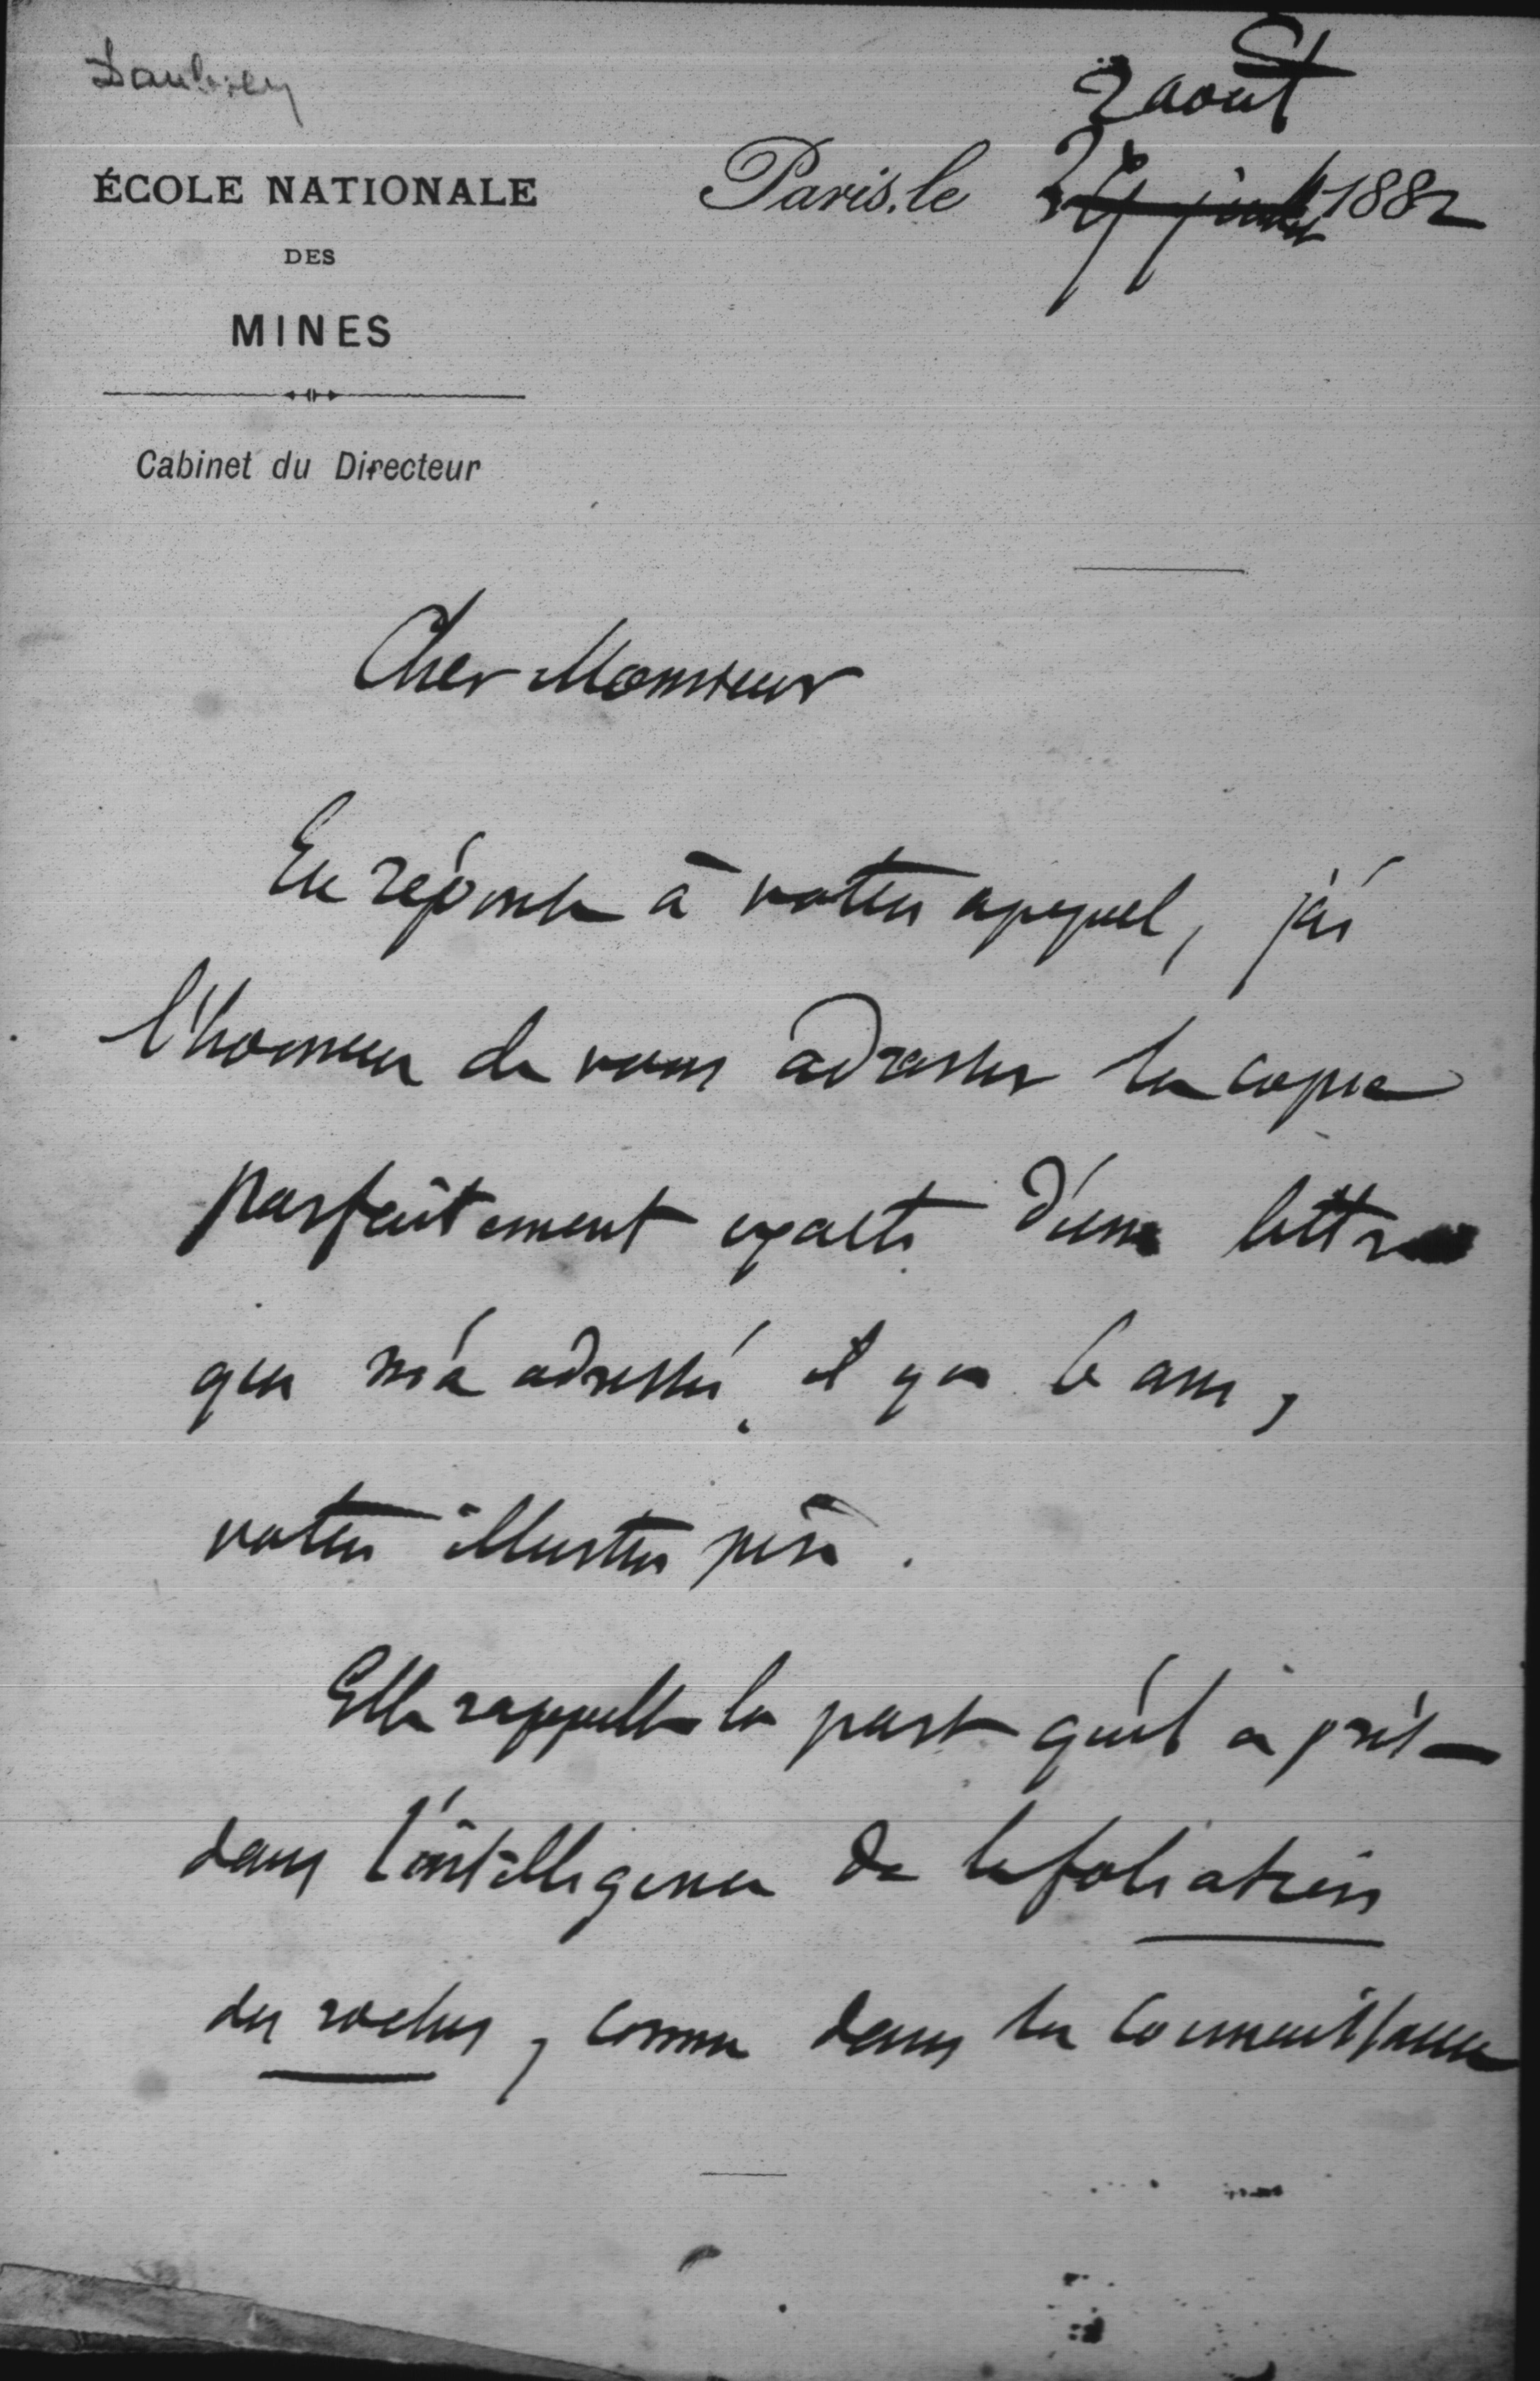 Daubrey
2 août
ÉCOLE NATIONALE
Paris, le juillet 1882
DES
MINES
Cabinet du Directeur
Cher Monsieur
En réponse à votre appel, j'ai
l'honneur de vous adresser la copie
parfaitement exacte d'une lettre
que m'a adressée, il y a 6 ans,
votre illustre père.
Elle rappelle la part qu'il a prise
dans l'intelligence de la foliation
des roches, comme dans la connaissance